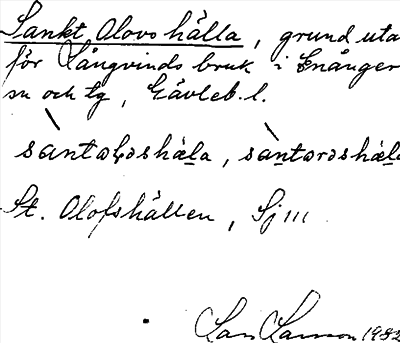 Sankt Olovs hälla, grund uta
för Långvinds bruk i Enånger
sn och tg, Gävleb. l.
santaḷəshäla, santorəshäla
St. Olofshällen, Sj 111
Lars Larsson 1932